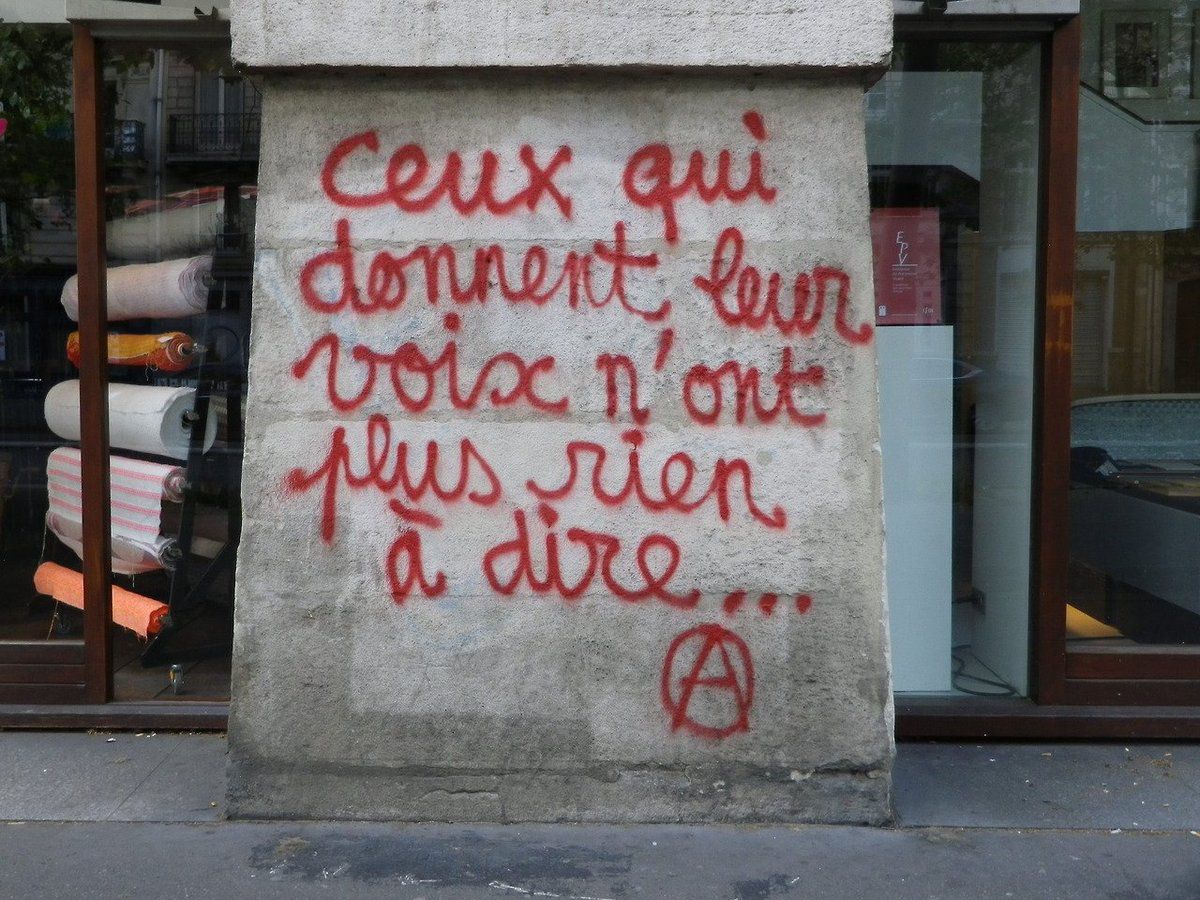 ceux qui
donnent leur
voix n'ont
plus rien
à dire...
A
EPV